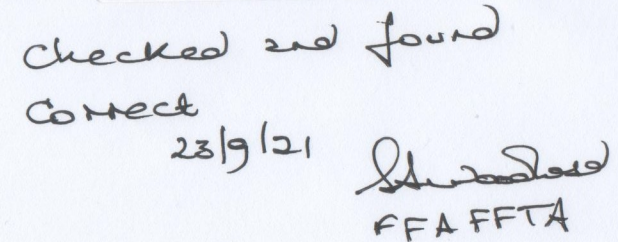 Checked and found
Correct
23/9/21
FFA FFTA